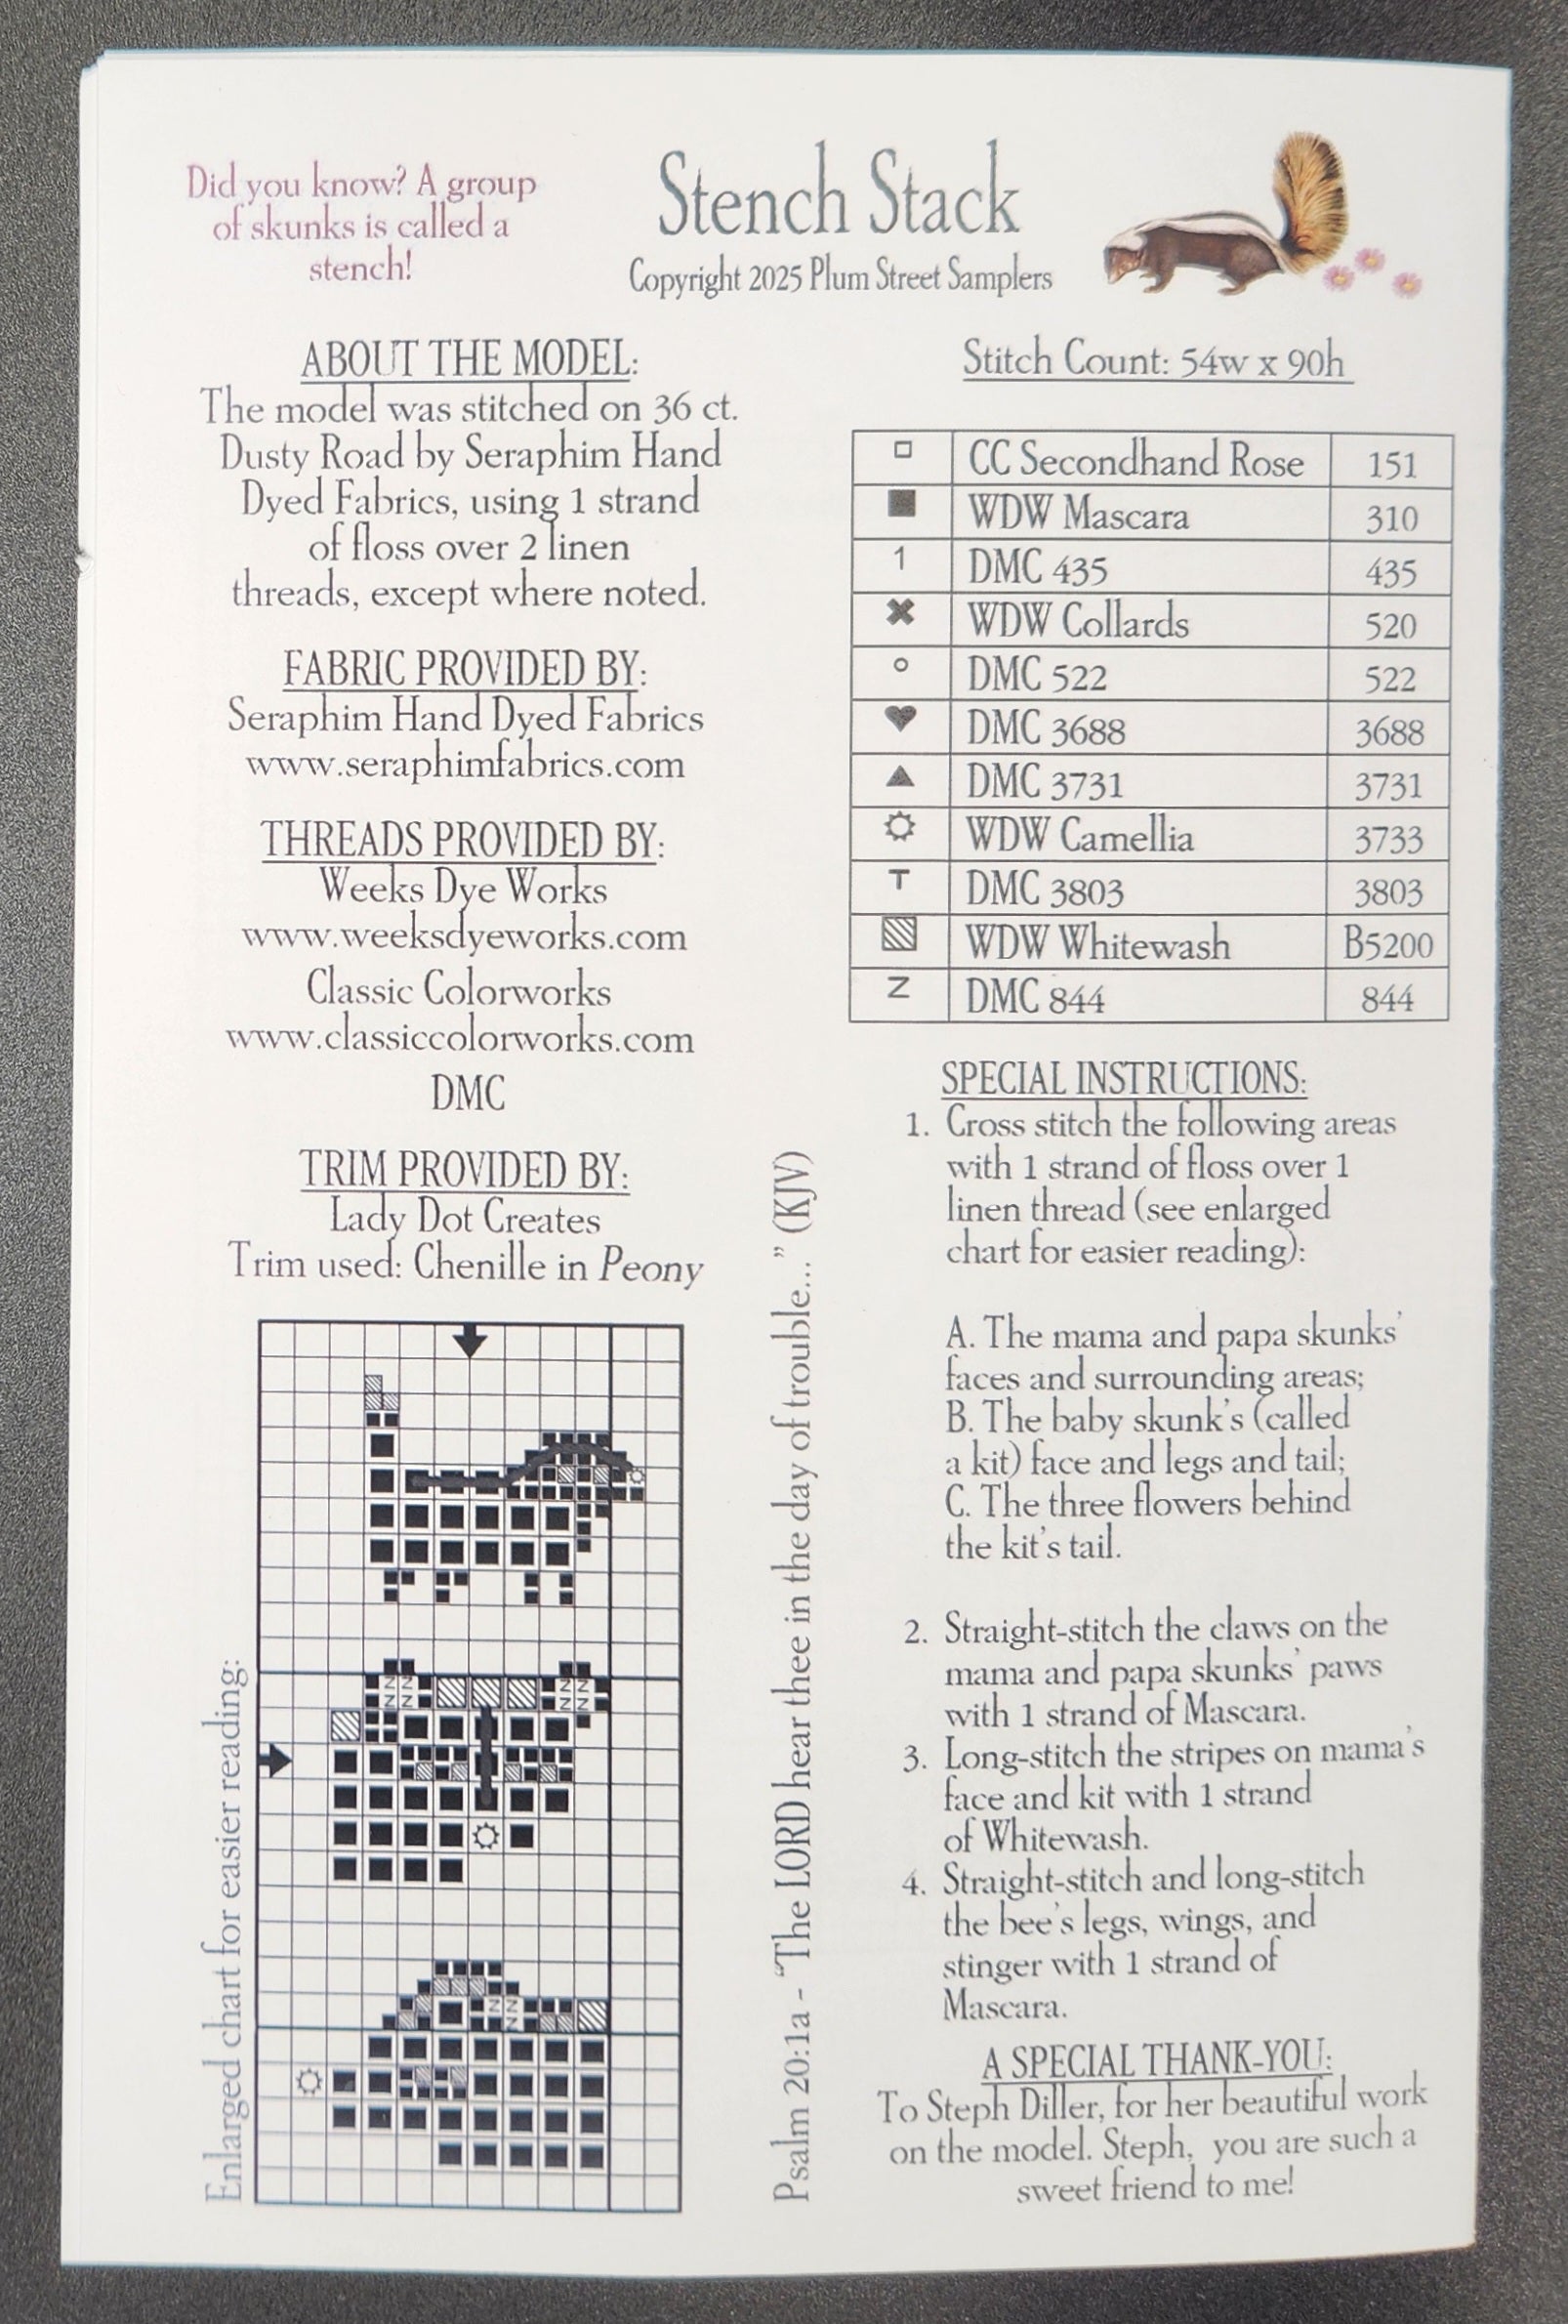 Did you know? A group
of skunks is called a
stench!
Stench Stack
Copyright 2025 Plum Street Samplers
ABOUT THE MODEL:
The model was stitched on 36 ct.
Dusty Road by Seraphim Hand
Dyed Fabrics, using 1 strand
of floss over 2 linen
threads, except where noted.
FABRIC PROVIDED BY:
Seraphim Hand Dyed Fabrics
www.seraphimfabrics.com
THREADS PROVIDED BY:
Weeks Dye Works
www.weeksdyeworks.com
Classic Colorworks
www.classiccolorworks.com
DMC
TRIM PROVIDED BY:
Lady Dot Creates
Trim used: Chenille in Peony
Enlarged chart for easier reading:
Psalm 20:1a - "The LORD hear thee in the day of trouble..." (KJV)
Stitch Count: 54w x 90h
CC Secondhand Rose 151
WDW Mascara 310
1 DMC 435 435
WDW Collards 520
DMC 522 522
DMC 3688 3688
DMC 3731 3731
WDW Camellia 3733
T DMC 3803 3803
WDW Whitewash B5200
Z DMC 844 844
SPECIAL INSTRUCTIONS:
1. Cross stitch the following areas
with 1 strand of floss over 1
linen thread (see enlarged
chart for easier reading):
A. The mama and papa skunks'
faces and surrounding areas;
B. The baby skunk's (called
a kit) face and legs and tail;
C. The three flowers behind
the kit's tail.
2. Straight-stitch the claws on the
mama and papa skunks' paws
with 1 strand of Mascara.
3. Long-stitch the stripes on mama's
face and kit with 1 strand
of Whitewash.
4. Straight-stitch and long-stitch
the bee's legs, wings, and
stinger with 1 strand of
Mascara.
A SPECIAL THANK-YOU:
To Steph Diller, for her beautiful work
on the model. Steph, you are such a
sweet friend to me!